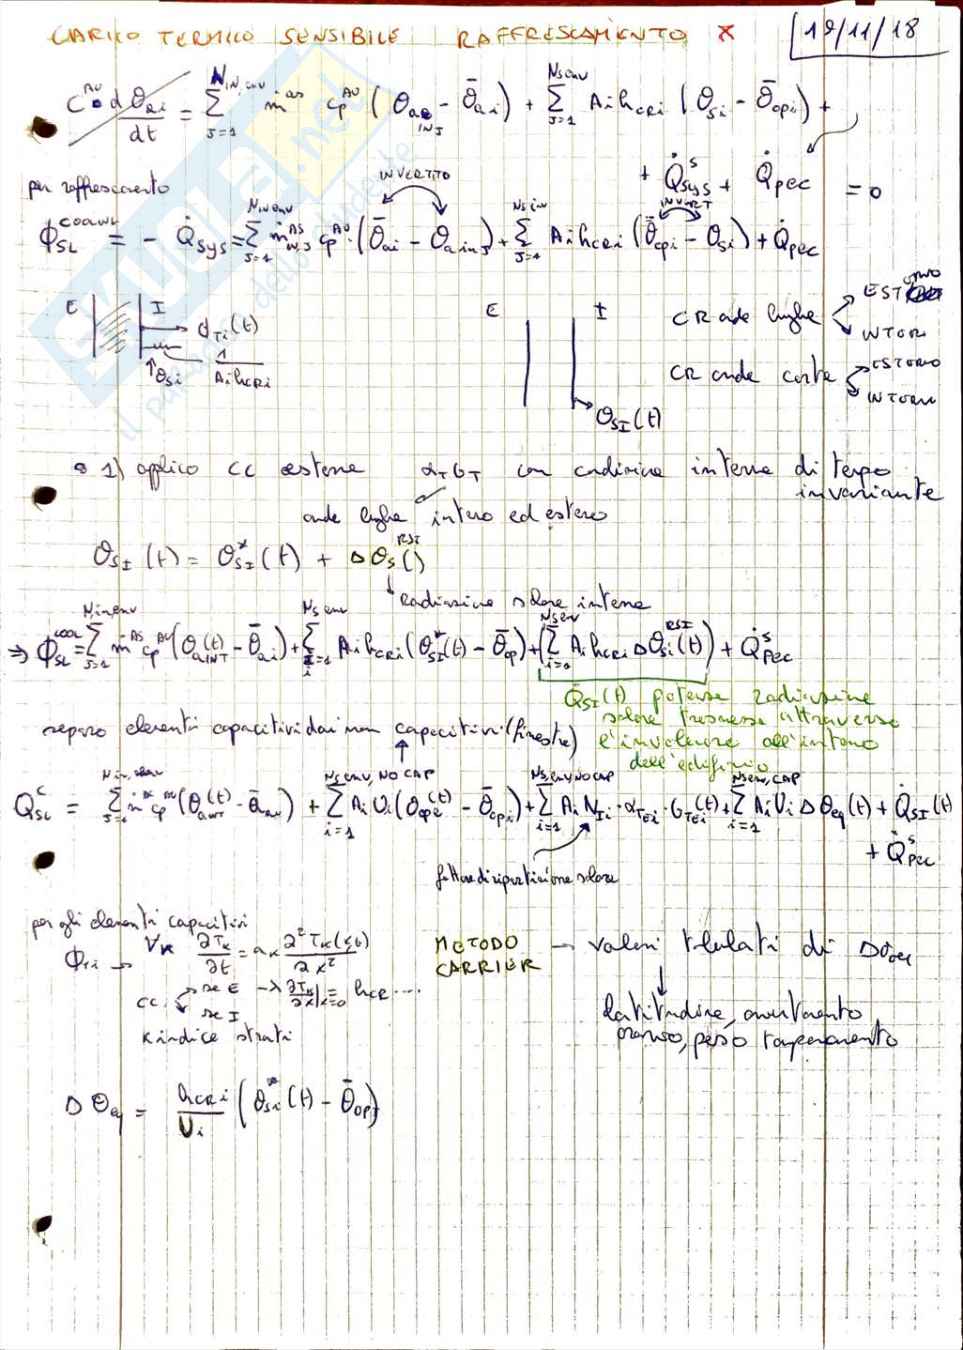 CARICO TERMICO SENSIBILE RAFFRESCAMENTO X 19/11/18
C^{AU} dθ_{ai}/dt = Σ_{J=1}^{N_{IN,env}} ṁ^{as} c_p^{AU} (θ_{ae INJ} - θ̄_{ai}) + Σ_{J=1}^{Ns env} A_i h_{CRi} (θ_{si} - θ̄_{opi}) +
+ Q̇^s_{sys} + Q̇_{pec} = 0
per raffrescamento
INVERTITO
INVERT
= - Q̇_{sys} = Σ_{J=1}^{Nin env} ṁ^{AS}_{IN,J} c_p^{AU} · (θ̄_{ai} - θ_{a in J}) + Σ_{J=1} A_i h_{CRi} (θ̄_{opi} - θ_{si}) + Q̇_{pec}
E I
d_{Ti}(t)
θ_{si}
1/(A_i h_{CRi})
E I
θ_{SI}(t)
CR onde lunghe ESTERNO
INTERN
CR onde corte ESTERNO
INTERN
1) applico CC esterne α_T G_T con condizione interne di tempo
invariante
onde lunghe interno ed esterno
θ_{SI}(t) = θ*_{SI}(t) + Δθ_S^{RSI}()
Radiazione solare interna
⇒ Φ^{cool}_{SL} = Σ_{J=1}^{Nin,env} ṁ^{AS} c_p^{AU} (θ_{a INT}(t) - θ̄_{ai}) + Σ_{i=1}^{Ns env} A_i h_{CRi} (θ*_{SI}(t) - θ̄_{op}) + (Σ_{i=1}^{Ns env} A_i h_{CRi} Δθ_{si}^{RSI}(t)) + Q̇^s_{pec}
Q̇_{SI}(t) potenza radiazione
solare trasmessa attraverso
l'involucro all'interno
dell'edificio
separo elementi capacitivi dai non capacitivi (finestre)
Q^c_{SL} = Σ_{J=1} ṁ c_p (θ(t) - θ̄) + Σ_{i=1}^{Ns env, NO CAP} A_i U_i (θ_{ope}(t) - θ̄_{opi}) + Σ_{i=1}^{Ns, env, NO CAP} A_i N_{Ii} · α_{TEi} · G_{TEi}(t) + Σ_{i=1}^{Ns env, CAP} A_i U_i Δθ_{eq}(t) + Q̇_{SI}(t)
+ Q̇^s_{pec}
fattore di ripartizione solare
per gli elementi capacitivi
∀k ∂T_k/∂t = a_k ∂²T_k(x,t)/∂x²
CC se E -λ ∂T_k/∂x|_{x=0} = h_{CR} ....
se I
k indice strati
METODO
CARRIER → valori tabulati di Δθ_{eq}
latitudine, orientamento
orario, peso tamponamento
Δθ_{eq} = h_{CRi}/U_i (θ*_{si}(t) - θ̄_{opi})
SKUOLA.net
il paradiso dello studente